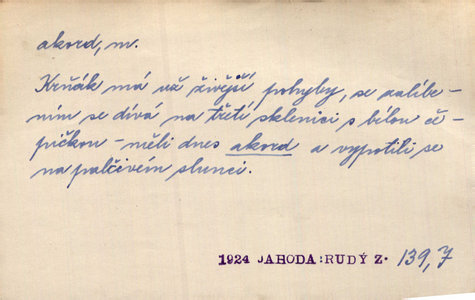 akord, m.
Krňák má už živější pohyby, se zalíbe-
ním se dívá na třetí sklenici s bílou če-
pičkou - měli dnes akord a vypotili se
na palčivém slunci.
1924 JAHODA:RUDÝ Z. 139,7